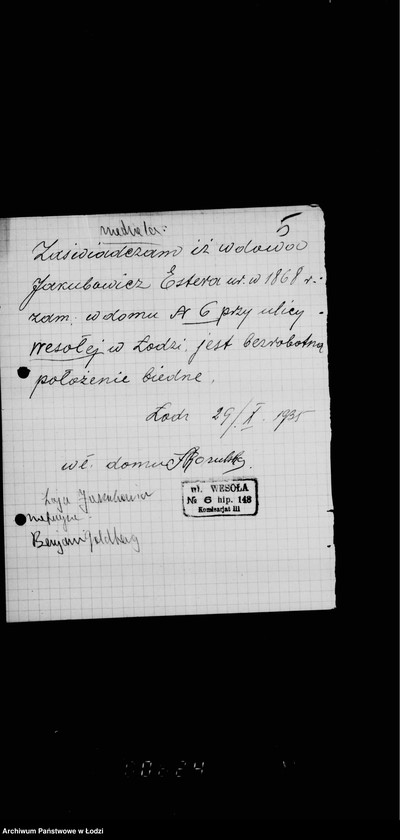 5
Zaświadczam iż wdowa
Jakubowicz Estera ur. w 1868 r.:
zam. w domu № 6 przy ulicy
Wesołej w Łodzi, jest bezrobotną
położenie biedne.
Łodz 29/X. 1935
wł. domu
ul. WESOŁA
№ 6 hip. 148
Komisarjat III
Benjam Goldberg
00224
Archiwum Państwowe w Łodzi